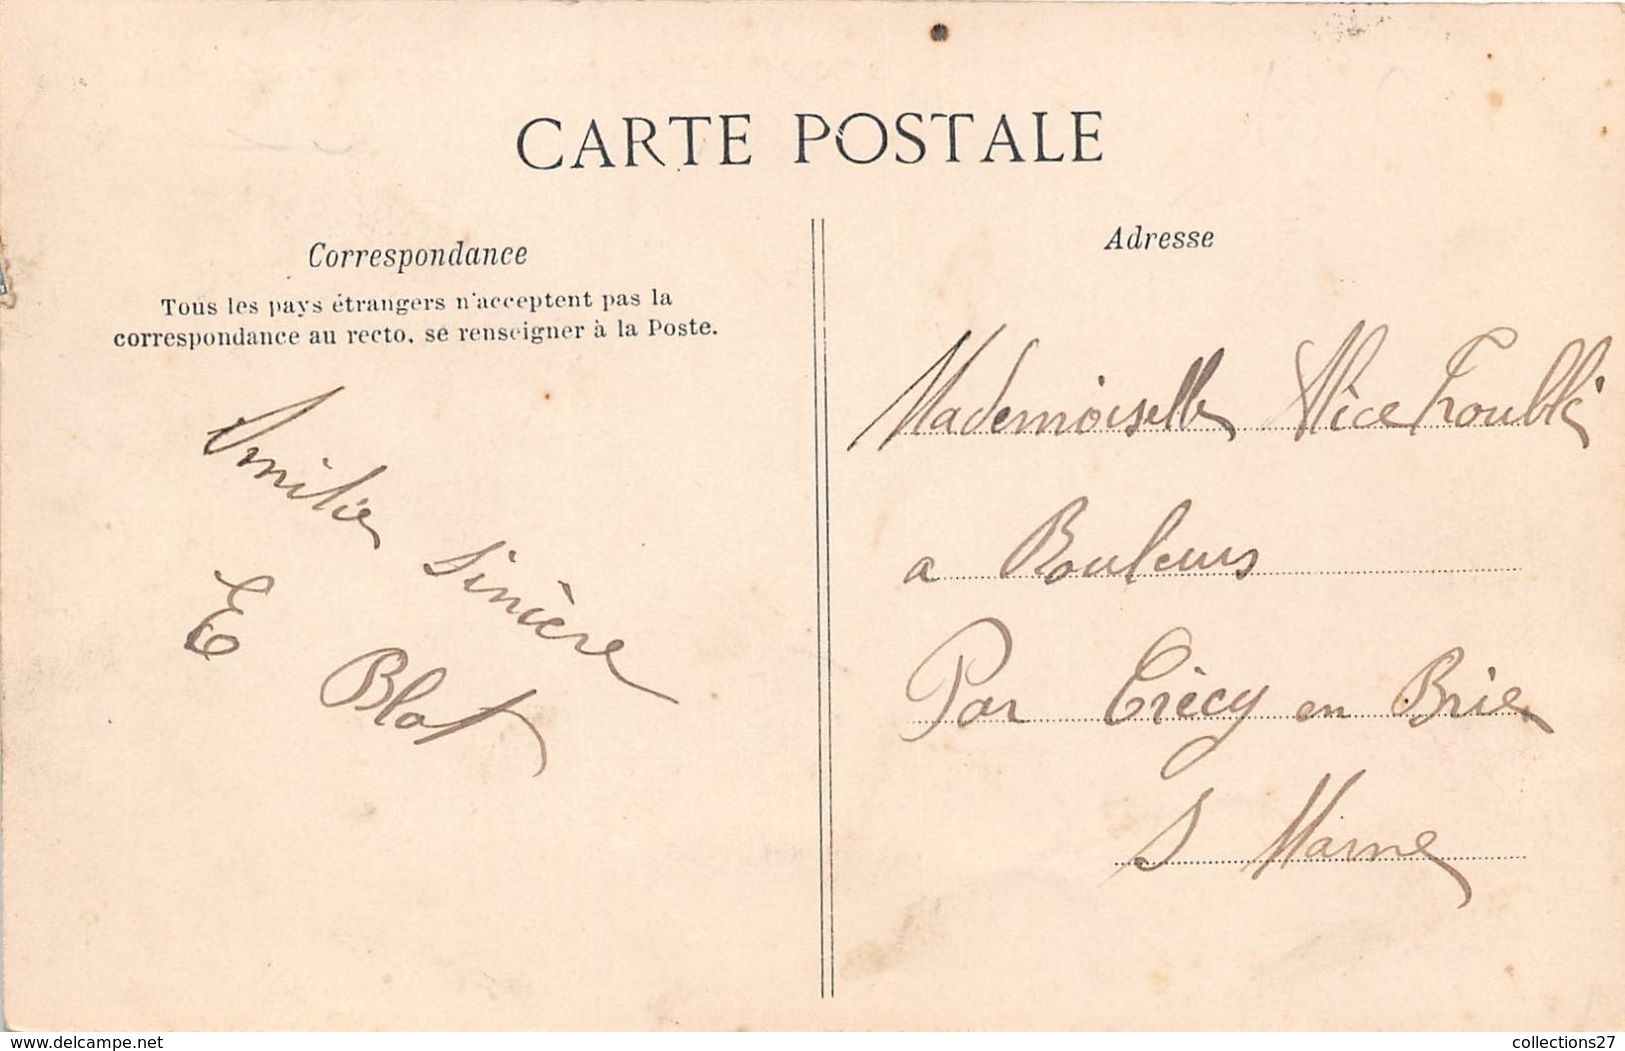 CARTE POSTALE
Correspondance
Tous les pays étrangers n'acceptent pas la
correspondance au recto, se renseigner à la Poste.
Amitié sincère
E Blot
Adresse
Mademoiselle Alice Troublé
a Bouleurs
Par Crécy en Brie
S Marne
www.delcampe.net
collections27